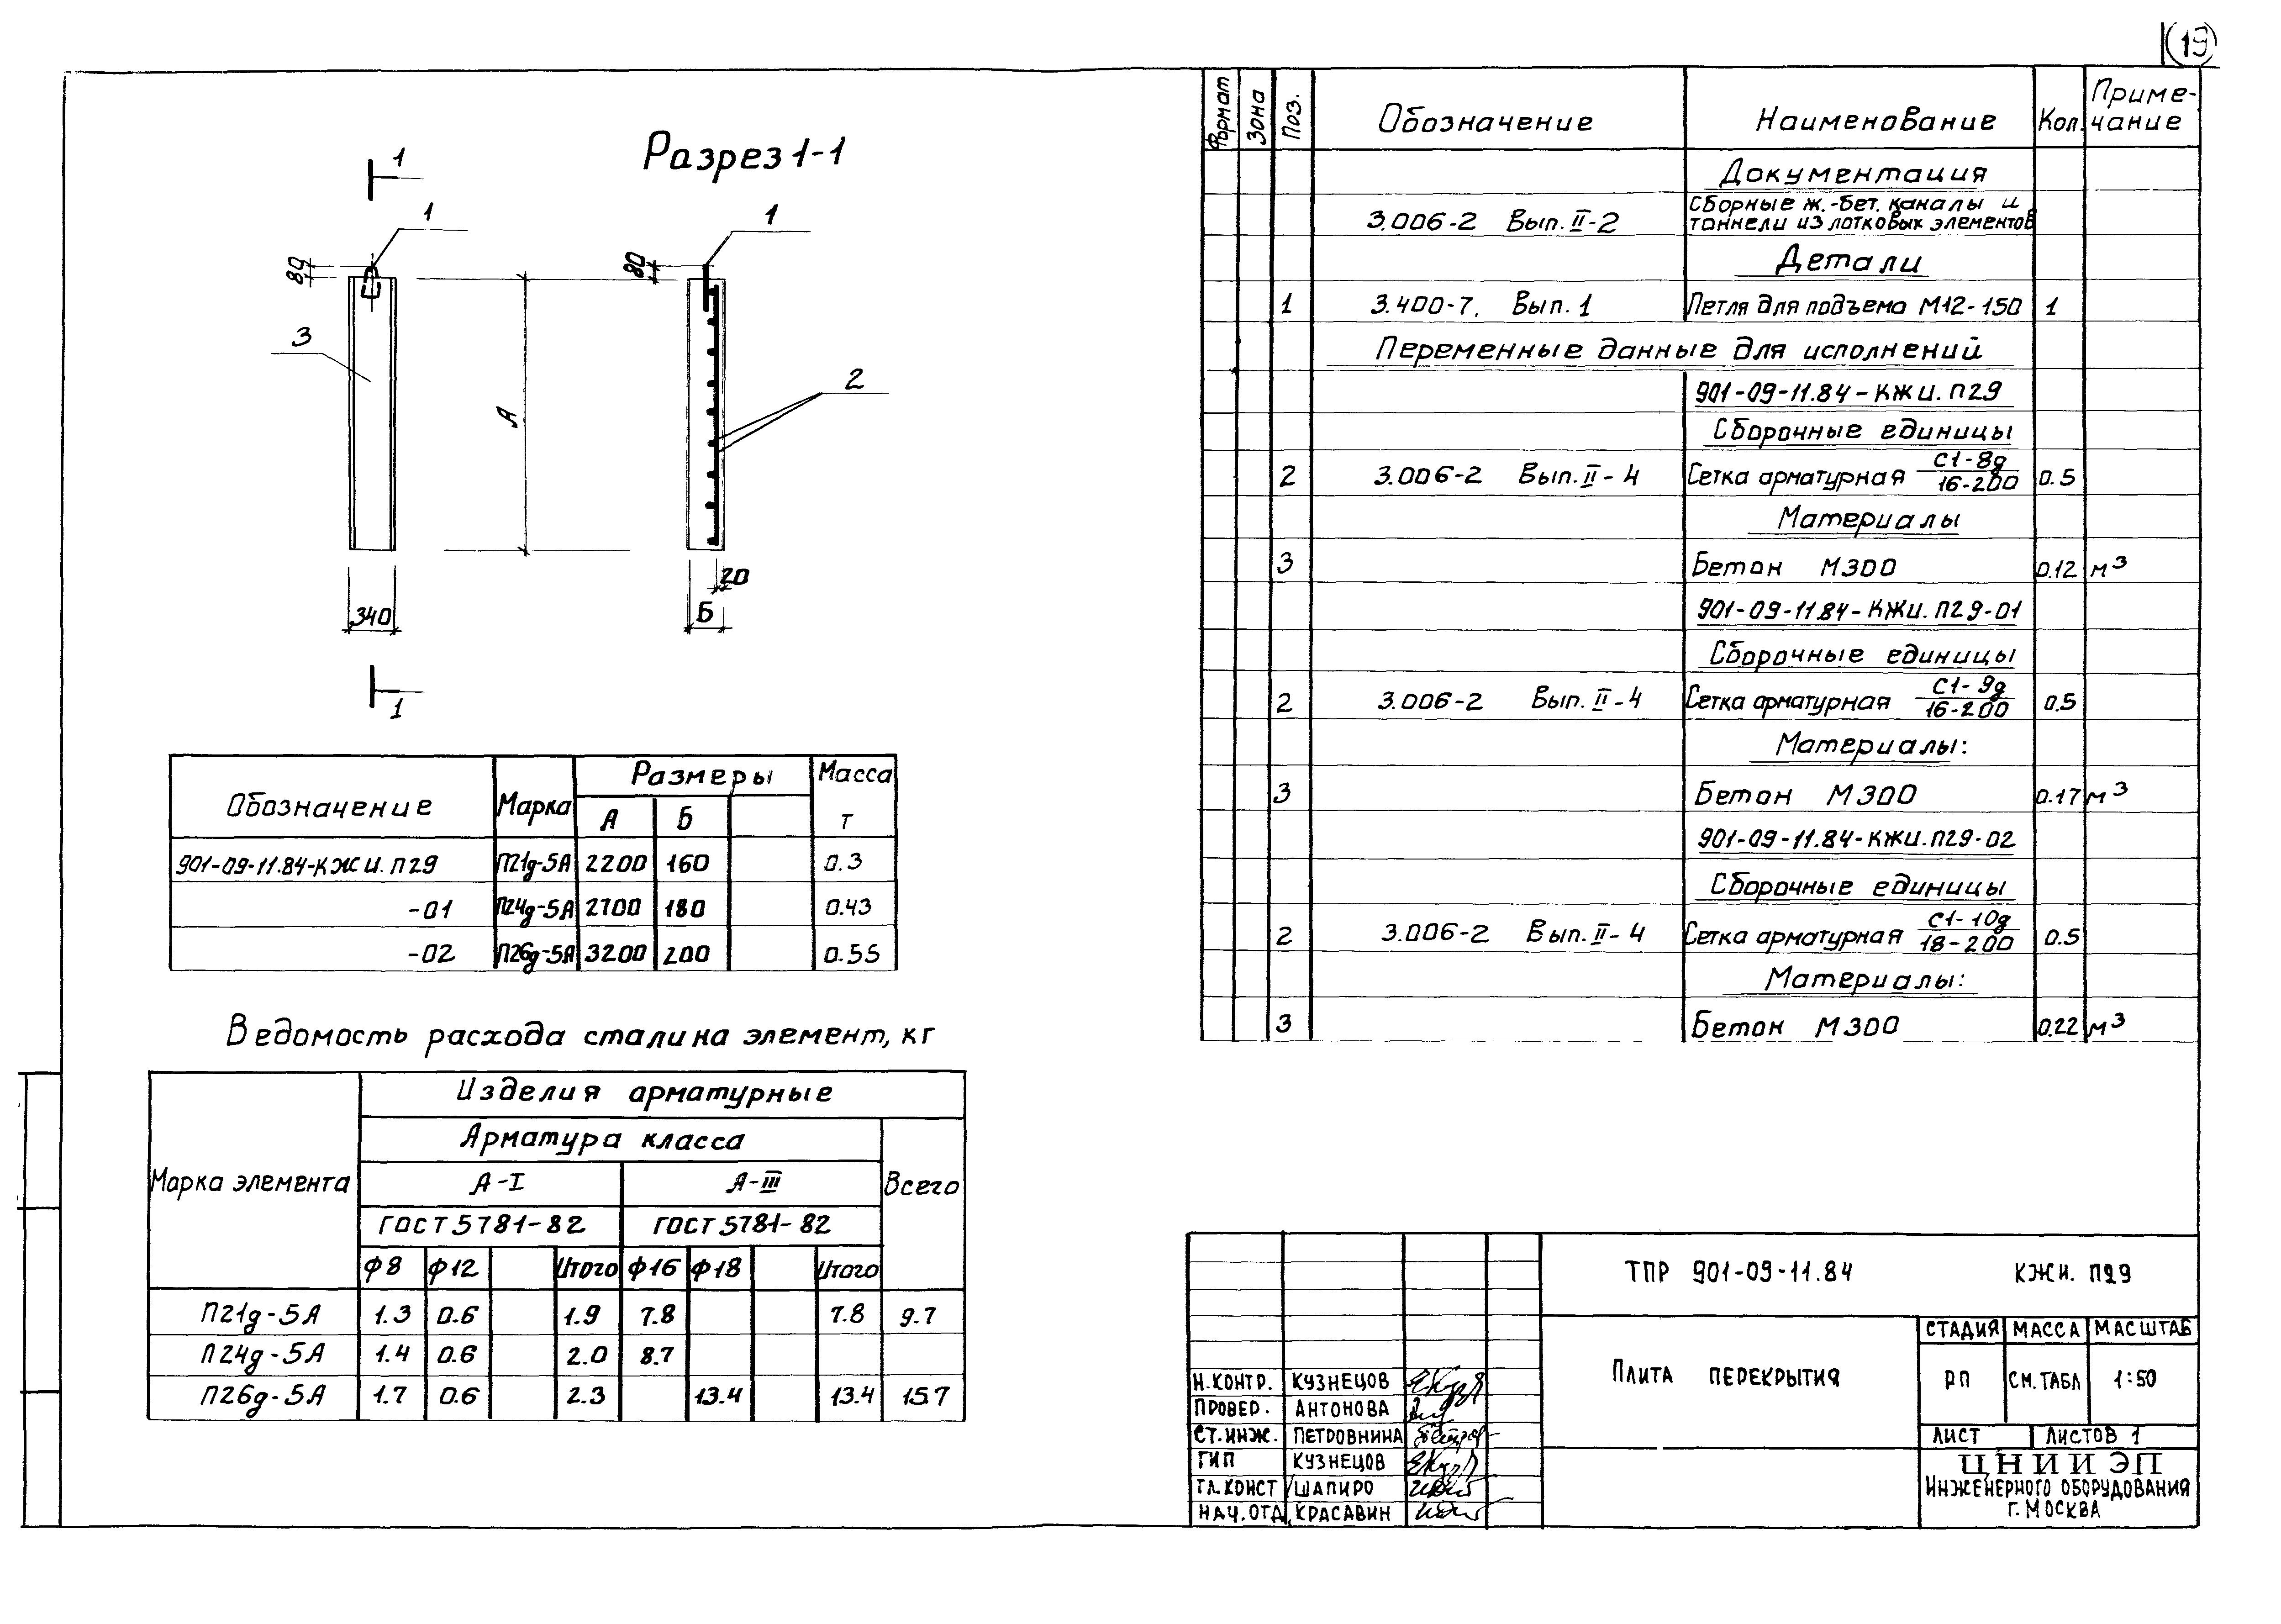 19
Разрез 1-1
1
1
1
80
80
3
А
2
20
340
Б
1
Обозначение Марка Размеры Масса
А Б т
901-09-11.84-КЖИ.П29 П21д-5А 2200 160 0.3
-01 П24д-5А 2700 180 0.43
-02 П26д-5А 3200 200 0.55
Ведомость расхода стали на элемент, кг
Марка элемента Изделия арматурные
Арматура класса Всего
А-I А-III
ГОСТ 5781-82 ГОСТ 5781-82
Ф8 Ф12 Итого Ф16 Ф18 Итого
П21д-5А 1.3 0.6 1.9 7.8 7.8 9.7
П24д-5А 1.4 0.6 2.0 8.7
П26д-5А 1.7 0.6 2.3 13.4 13.4 15.7
Формат Зона Поз. Обозначение Наименование Кол. Приме-
чание
Документация
3.006-2 Вып. II-2 Сборные ж.-бет. каналы и
тоннели из лотковых элементов
Детали
1 3.400-7. Вып. 1 Петля для подъема М12-150 1
Переменные данные для исполнений
901-09-11.84-КЖИ.П29
Сборочные единицы
2 3.006-2 Вып. II-4 Сетка арматурная С1-8д/16-200 0.5
Материалы
3 Бетон М300 0.12 м³
901-09-11.84-КЖИ.П29-01
Сборочные единицы
2 3.006-2 Вып. II-4 Сетка арматурная С1-9д/16-200 0.5
Материалы:
3 Бетон М300 0.17 м³
901-09-11.84-КЖИ.П29-02
Сборочные единицы
2 3.006-2 Вып. II-4 Сетка арматурная С1-10д/18-200 0.5
Материалы:
3 Бетон М300 0.22 м³
ТПР 901-09-11.84 КЖИ. П29
Плита перекрытия
СТАДИЯ МАССА МАСШТАБ
РП СМ. ТАБЛ 1:50
ЛИСТ ЛИСТОВ 1
Н.КОНТР. КУЗНЕЦОВ
ПРОВЕР. АНТОНОВА
СТ.ИНЖ. ПЕТРОВНИНА
ГИП КУЗНЕЦОВ
ГЛ.КОНСТ ШАПИРО
НАЧ.ОТД. КРАСАВИН
ЦНИИЭП
ИНЖЕНЕРНОГО ОБОРУДОВАНИЯ
г. МОСКВА